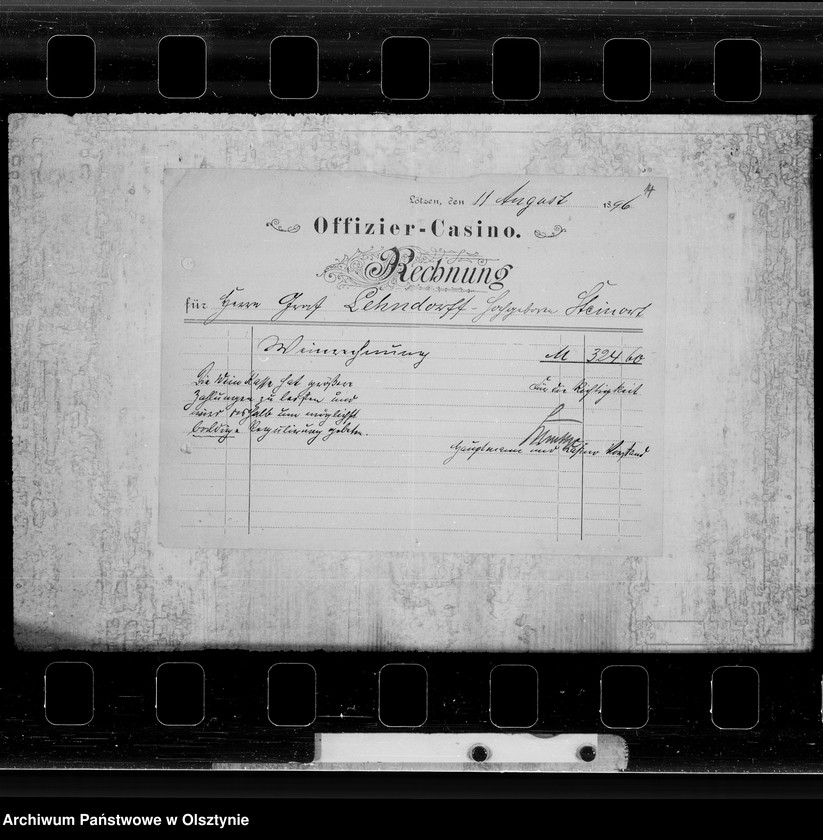 14
Lötzen, den 11 August 1896
Offizier-Casino.
Rechnung
für Herrn Graf Lehndorff-Hochgeboren Steinort
Weinrechnung M 324 60
Die Weinkasse hat größere
Zahlungen zu leisten und
wird deshalb um möglichst
baldige Regulierung gebeten.
Für die Richtigkeit
Hauptmann und Kasino Vorstand
Archiwum Państwowe w Olsztynie